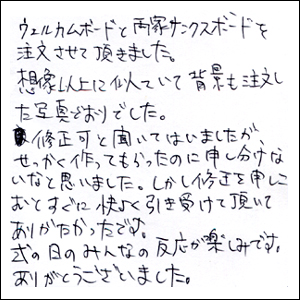 ウェルカムボードと両家サンクスボードを
注文させて頂きました。
想像以上に似ていて背景も注文し
た写真どおりでした。
修正可と聞いてはいましたが、
せっかく作ってもらったのに申し分けな
いなと思いました。しかし修正を申しこ
むとすぐに快よく引き受けて頂いて
ありがたかったです。
式の日のみんなの反応が楽しみです。
ありがとうございました。